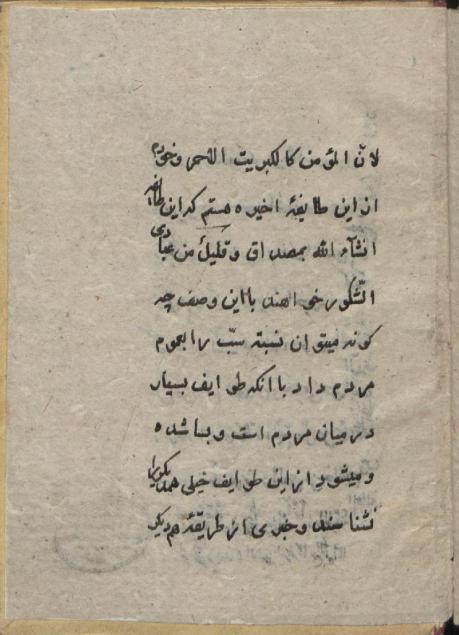 لانّ المؤمن كالكبريت الاحمر و خود
از این طایفهٔ اخیره هستم که این طایفه
انشآء الله بمصداق و قلیلٌ من عبادی
الشّکور خواهند بااین وصف چه
کونه میتوان نسبتهٔ سبّ را بعموم
مردم داد باانکه طوایف بسیار
درمیان مردم است و بسا شده
و میشود از این طوایف خیلی همدیکررا
نشناسند و خبری از طریقهٔ هم دیکر